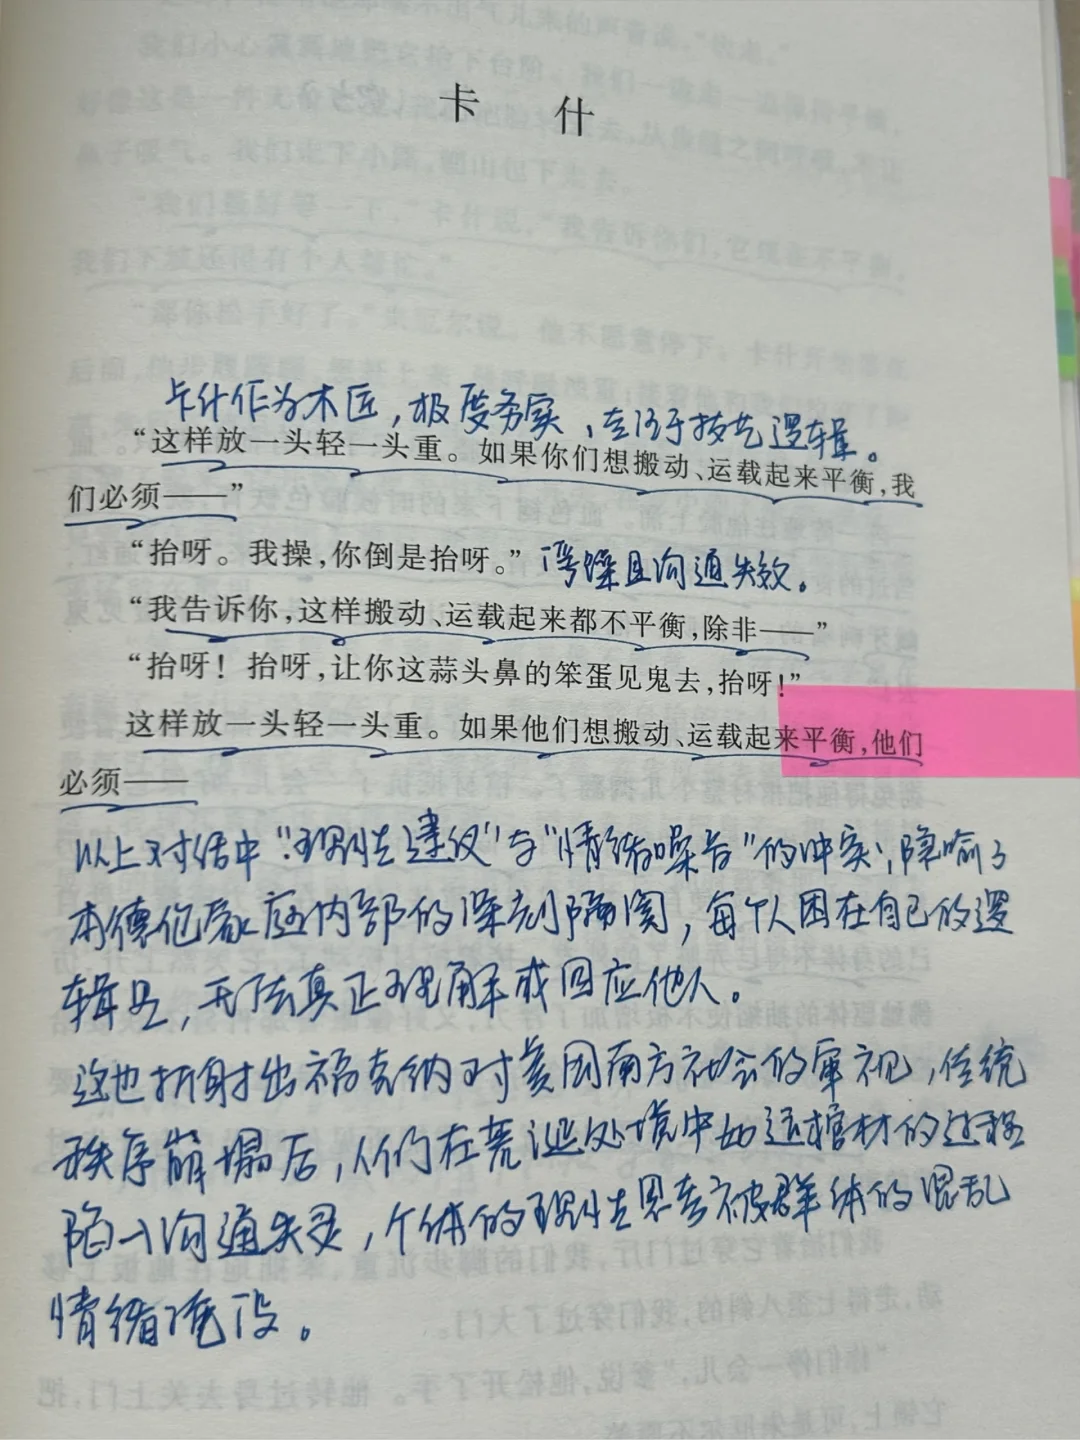 卡什
卡什作为木匠，极度务实、专注于技艺逻辑。
“这样放一头轻一头重。如果你们想搬动、运载起来平衡，我
们必须——”
“抬呀。我操，你倒是抬呀。” 浮躁且沟通失效。
“我告诉你，这样搬动、运载起来都不平衡，除非——”
“抬呀！抬呀，让你这蒜头鼻的笨蛋见鬼去，抬呀！”
这样放一头轻一头重。如果他们想搬动、运载起来平衡，他们
必须——
以上对话中“理性建议”与“情绪噪音”的冲突，隐喻了
本德伦家庭内部的深刻隔阂，每个人困在自己的逻
辑里，无法真正理解或回应他人。
这也折射出福克纳对美国南方社会的审视，传统
秩序崩塌后，人们在荒诞处境中如运棺材的过程
陷入沟通失灵，个体的理性思考被群体的混乱
情绪淹没。